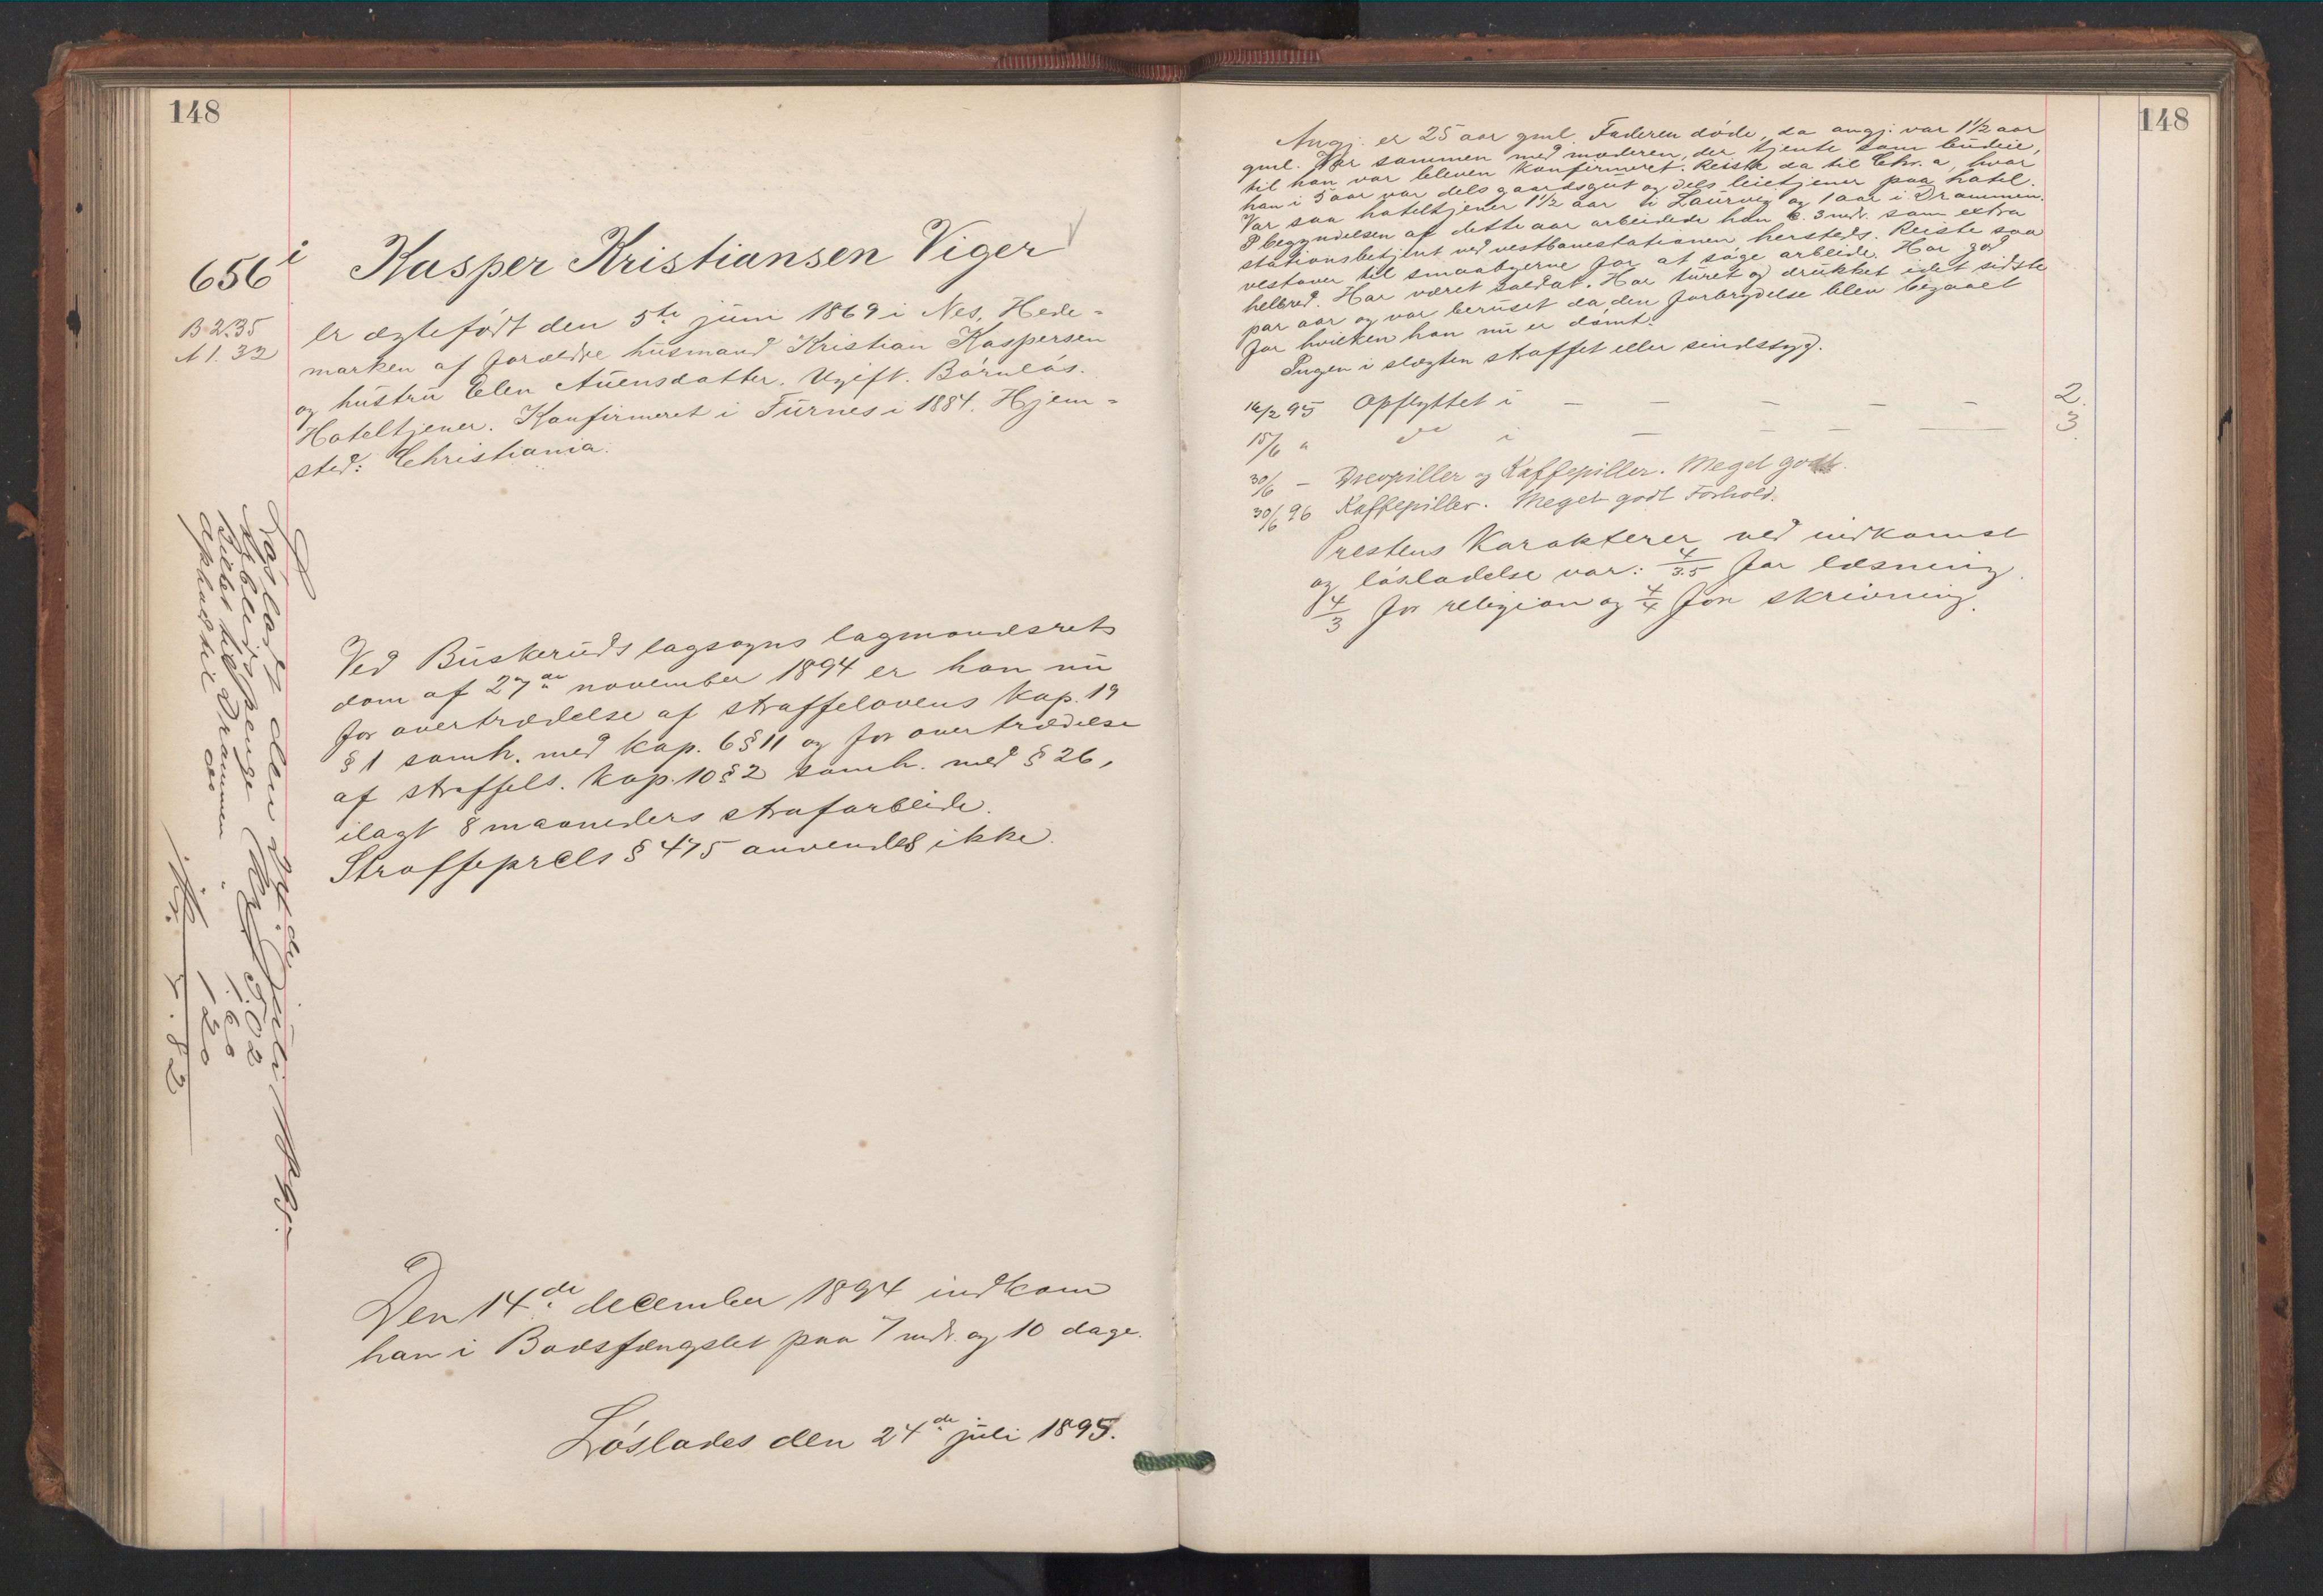 148
656 i Kasper Kristiansen Viger
B 2.35
A 1.32
er ægtefødt den 5te juni 1869 i Nes, Hede-
marken af forældre husmand Kristian Kaspersen
og hustru Elen Auensdatter. Ugift. Barnløs.
Hoteltjener. Konfirmeret i Furnes i 1884. Hjem-
sted: Christiania.
Ved Buskeruds lagsogns lagmandsrets
dom af 27de november 1894 er han nu
for overtrædelse af straffelovens Kap. 19
§ 1 samh. med Kap. 6 § 11 og for overtrædelse
af straffels. Kap. 10 § 2 samh. med § 26,
ilagt 8 maaneders strafarbeide.
Straffeprcls § 475 anvendes ikke.
Den 14de december 1894 indkom
han i Bodsfængslet paa 7 mdr. og 10 dage.
Løslades den 24de juli 1895.
Løsladt den 24de Juli 1895.
Arbeidspenge Kr. 5.02
Billet til Drammen " 1.60
1 20
Kr. 7.82
148
Angj. er 25 aar gml. Faderen døde, da angj. var 1½ aar
gml. Var sammen med moderen, der tjente som budeie,
til han var bleven konfirmeret. Reiste da til Chr.a, hvor
han i 5 aar var dels gaardsgut og dels leietjener paa hotel.
Var saa hoteltjener 1½ aar i Laurvig og 1 aar i Drammen.
I begyndelsen af dette aar arbeidede han c. 3 mdr. som extra
stationsbetjent ved vestbanestationen, hersteds. Reiste saa
vestover til smaabyerne for at søge arbeide. Har god
helbred. Har været soldat. Har turet og drukket i det sidste
par aar og var beruset da den forbrydelse blev begaaet
for hvilken han nu er dømt.
Ingen i slægten straffet eller sindssyg.
16/2 95 Opflyttet i — — — — — 2.
15/6 " do i — — — — 3.
30/6 — Kaffepiller. Meget godt.
30/6 96 Kaffepiller. Meget godt Forhold.
Prestens Karakterer ved indkomst
og løsladelse var: 4/3.5 for læsning.
4/3 for religion og 4/4 for skrivning.